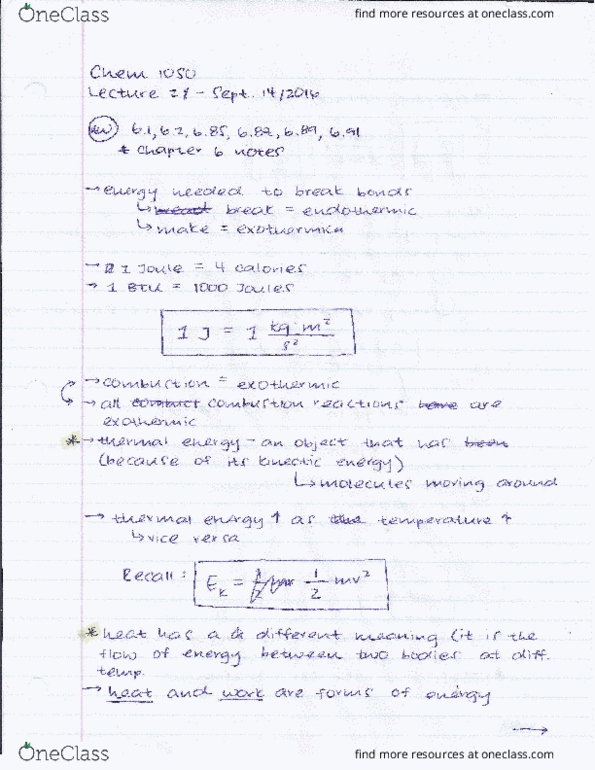 OneClass
find more resources at oneclass.com
Chem 1050
Lecture - Sept. 14/2016
HW 6.1, 6.2, 6.85, 6.82, 6.89, 6.91
* Chapter 6 notes
→ energy needed to break bonds
↳ break = endothermic
↳ make = exothermic
→ 1 Joule = 4 calories
→ 1 BTU = 1000 Joules
1 J = 1 kg m²/s²
→ combustion = exothermic
→ all combustion reactions are
exothermic
* → thermal energy - an object that has
(because of its kinectic energy)
↳ molecules moving around
→ thermal energy ↑ as temperature ↑
↳ vice versa
Recall: Eₖ = 1/2 mv²
* heat has a different meaning (it is the
flow of energy between two bodies at diff.
temp.
→ heat and work are forms of energy
→
OneClass
find more resources at oneclass.com